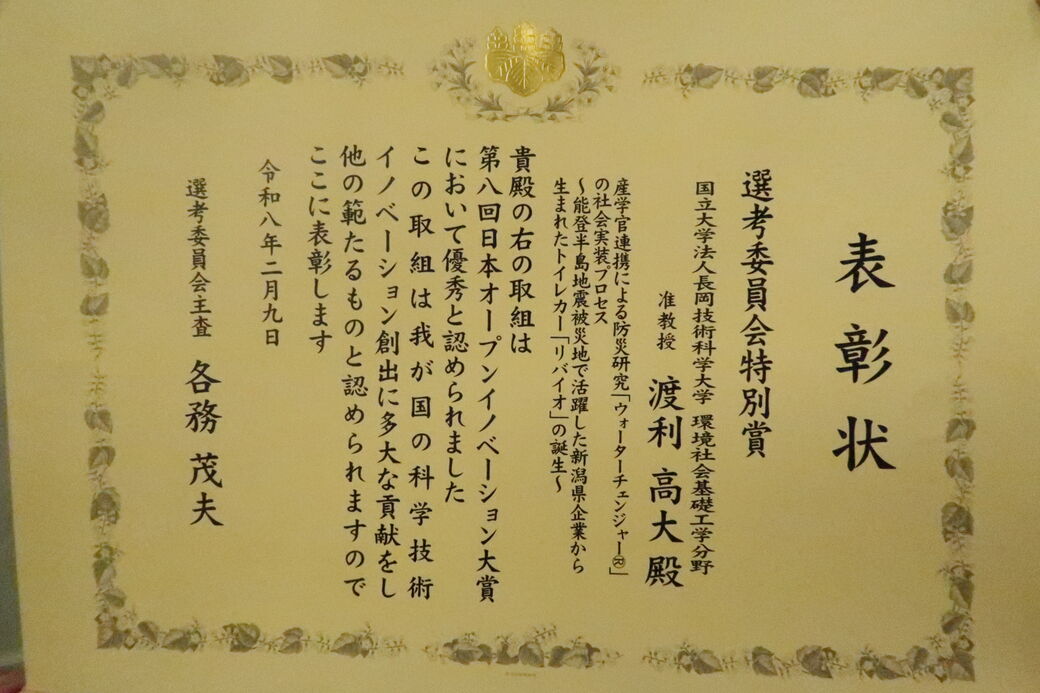 表彰状
選考委員会特別賞
国立大学法人長岡技術科学大学 環境社会基礎工学分野
准教授 渡利高大殿
産学官連携による防災研究「ウォーターチェンジャー®」
の社会実装プロセス
～能登半島地震被災地で活躍した新潟県企業から
生まれたトイレカー「リバイオ」の誕生～
貴殿の右の取組は
第八回日本オープンイノベーション大賞
において優秀と認められました
この取組は我が国の科学技術
イノベーション創出に多大な貢献をし
他の範たるものと認められますので
ここに表彰します
令和八年二月九日
選考委員会主査 各務茂夫